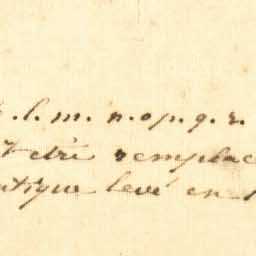 . l. m. n. o. p. q. r.
être remplac
ntique levé en